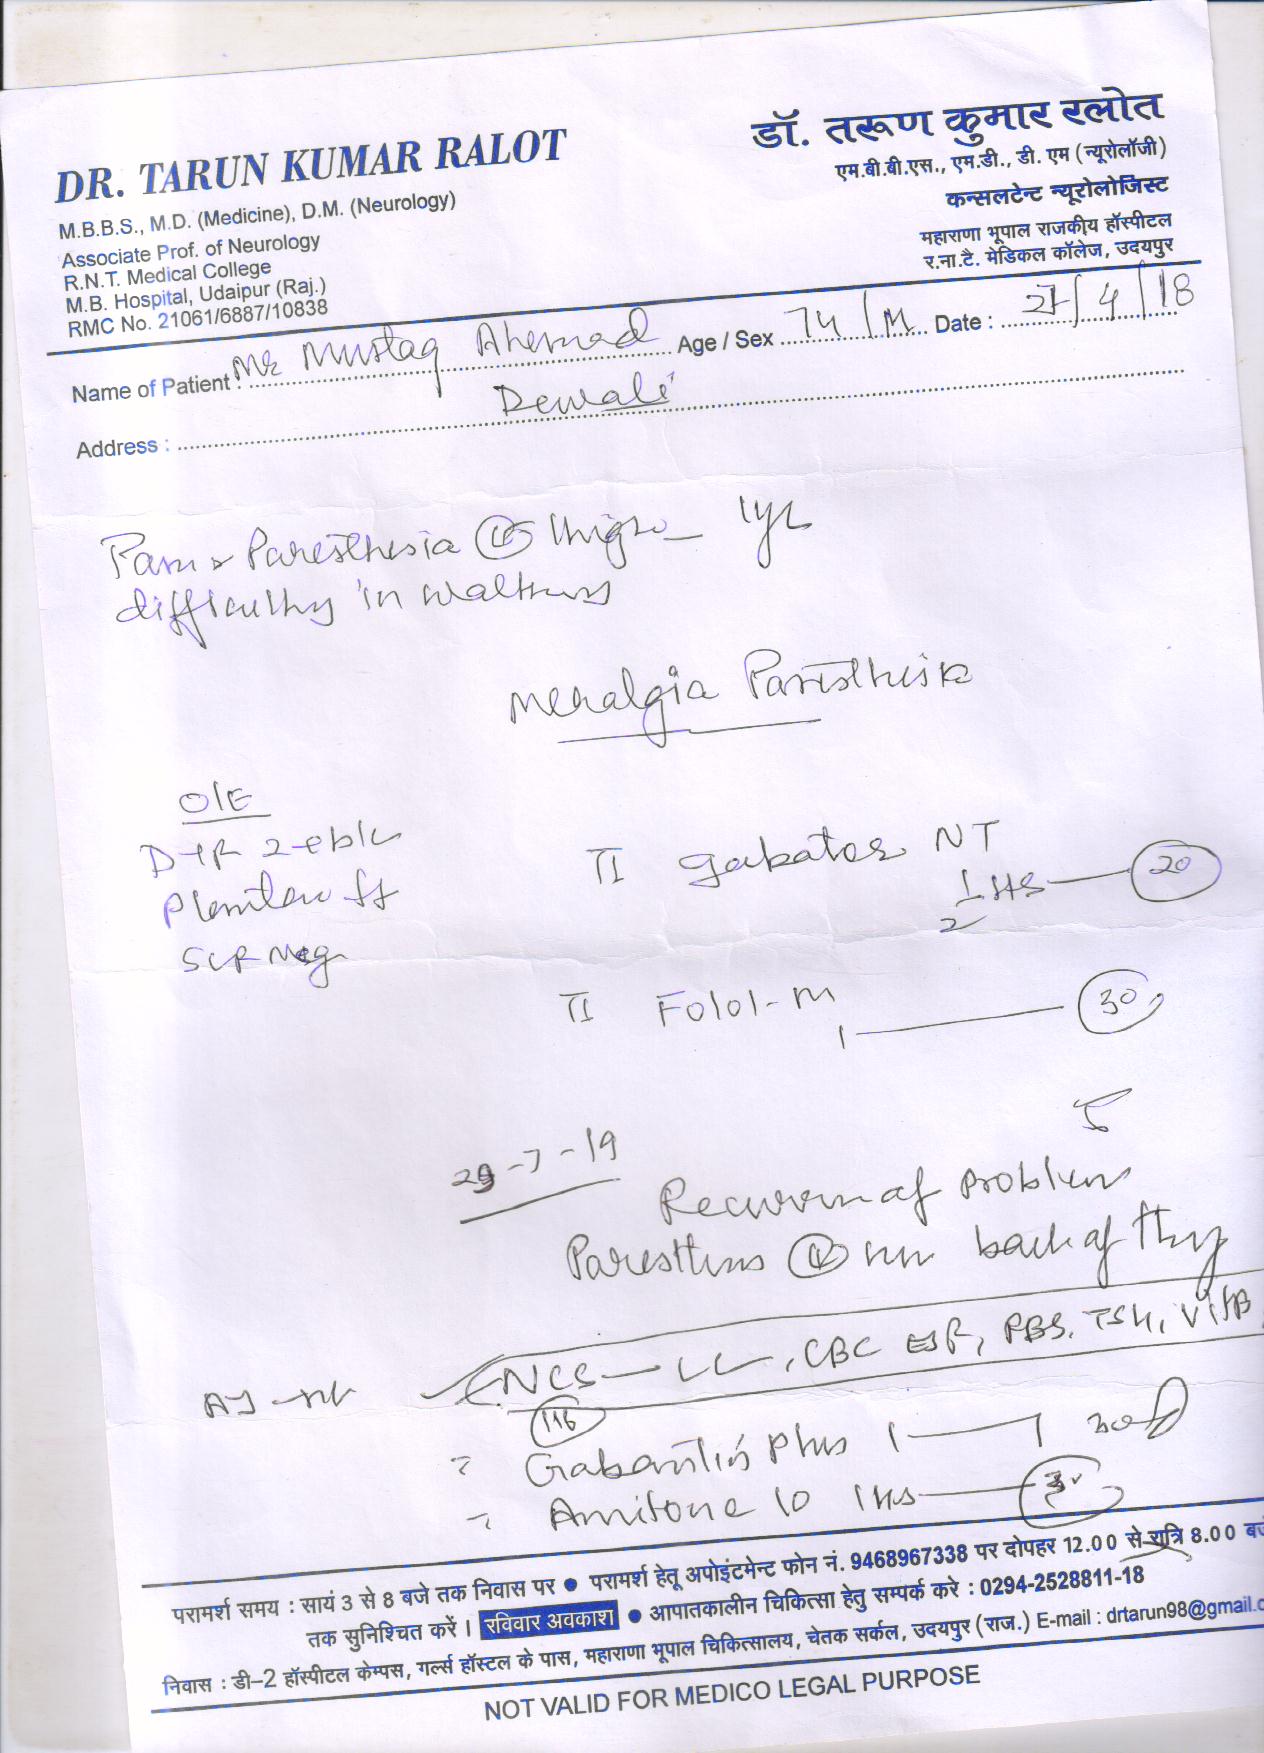 DR. TARUN KUMAR RALOT
M.B.B.S., M.D. (Medicine), D.M. (Neurology)
Associate Prof. of Neurology
R.N.T. Medical College
M.B. Hospital, Udaipur (Raj.)
RMC No. 21061/6887/10838
डॉ. तरूण कुमार रलोत
एम.बी.बी.एस., एम.डी., डी. एम (न्यूरोलॉजी)
कन्सलटेन्ट न्यूरोलोजिस्ट
महाराणा भूपाल राजकीय हॉस्पीटल
र.ना.टै. मेडिकल कॉलेज, उदयपुर
Name of Patient : Mr Mustaq Ahemad Age / Sex 74/M Date : 27/4/18
Address : Dewali
Pain & Paresthesia thigh 1yr
difficulty in walking
Meralgia Paresthesia
O/E
DTR
Plantar
SLR Neg
Gabator NT
1/2 HS 20
Folol-M
1 30
29-7-19
Recurrence of problem
back of thigh
NCS - LL, CBC ESR, TSH, Vit B
116
Gabantin Plus 1
Amitone 10 1 HS
परामर्श समय : सायं 3 से 8 बजे तक निवास पर ● परामर्श हेतू अपोइंटमेन्ट फोन नं. 9468967338 पर दोपहर 12.00 से रात्रि 8.00
तक सुनिश्चित करें । रविवार अवकाश ● आपातकालीन चिकित्सा हेतु सम्पर्क करे : 0294-2528811-18
निवास : डी-2 हॉस्पीटल केम्पस, गर्ल्स हॉस्टल के पास, महाराणा भूपाल चिकित्सालय, चेतक सर्कल, उदयपुर (राज.) E-mail : drtarun98@gmail.c
NOT VALID FOR MEDICO LEGAL PURPOSE